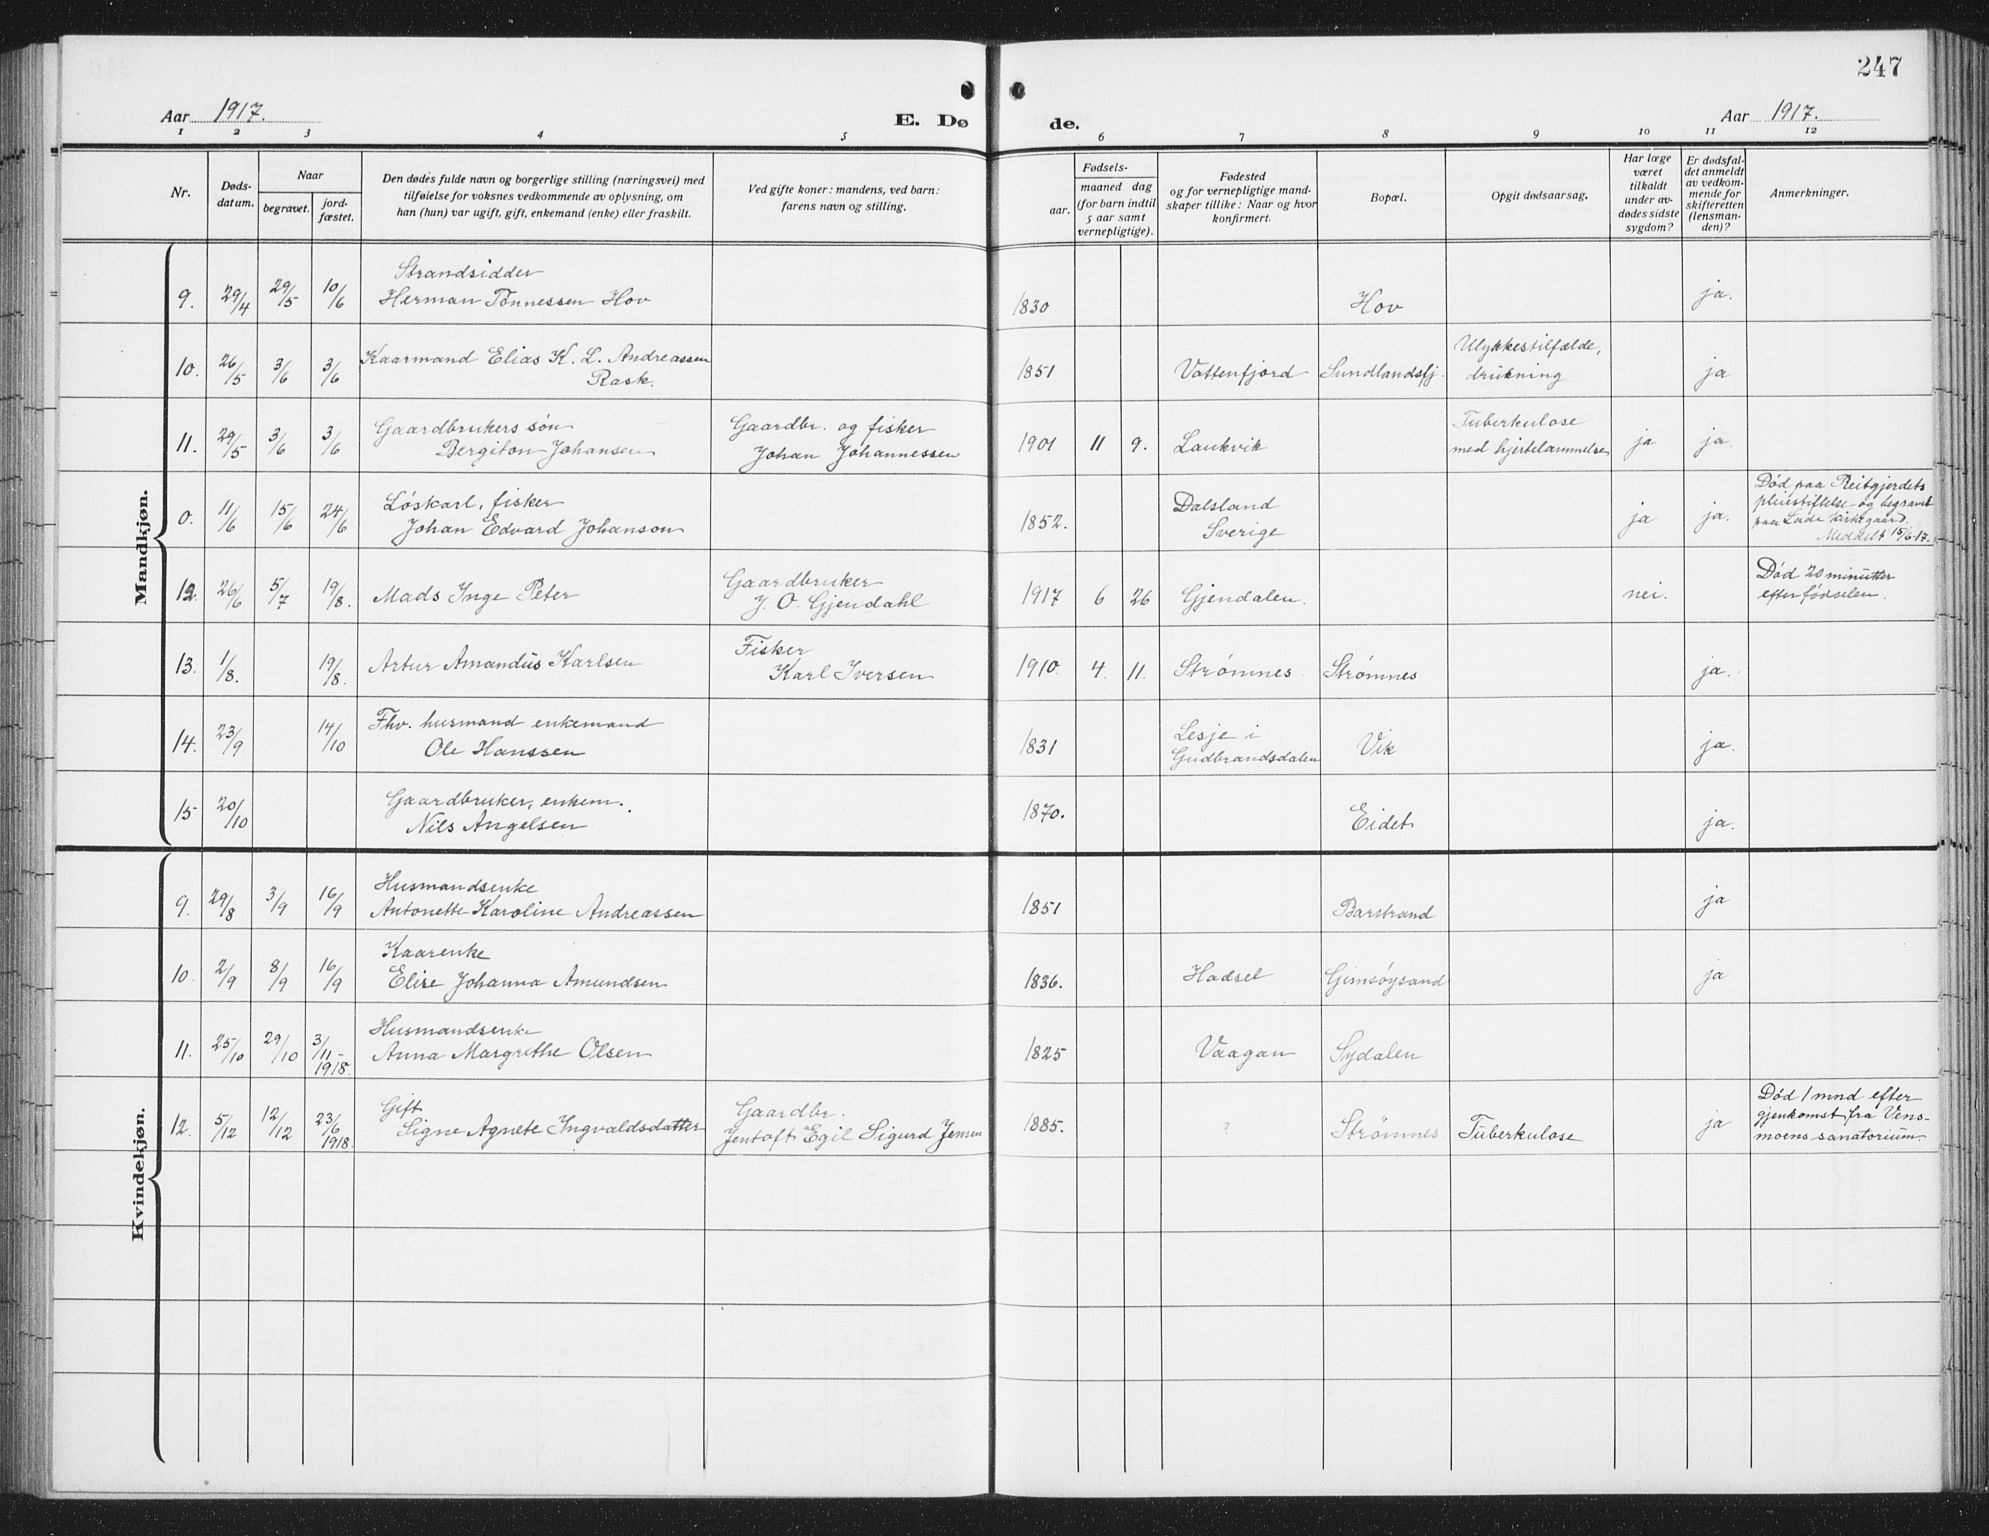 247
Aar 1917.
E. Døde.
Aar 1917.
1 2 3 4 5 6 7 8 9 10 11 12
Nr.
Døds-
datum.
Naar
begravet.
jord-
fæstet.
Den dødes fulde navn og borgerlige stilling (næringsvei) med
tilføielse for voksnes vedkommende av oplysning, om
han (hun) var ugift, gift, enkemand (enke) eller fraskilt.
Ved gifte koner: mandens, ved barn:
farens navn og stilling.
Fødsels-
aar.
maaned dag
(for barn indtil
5 aar samt
vernepligtige).
Fødested
og for vernepligtige mand-
skaper tillike: Naar og hvor
konfirmert.
Bopæl.
Opgit dødsaarsag.
Har læge
været
tilkaldt
under av-
dødes sidste
sygdom?
Er dødsfal-
det anmeldt
av vedkom-
mende for
skifteretten
(lensman-
den)?
Anmerkninger.
Mandkjøn.
9. 29/4 29/5 10/6
Strandsidder
Herman Tønnessen Hov
1830 Hov ja.
10. 26/5 3/6 3/6
Kaarmand Elias K. L. Andreassen
Rask.
1851 Vattenfjord Sundlandsfj.
Ulykkestilfælde,
drukning
ja
11. 29/5 3/6 3/6
Gaardbrukers søn
Bergiton Johansen
Gaardbr. og fisker
Johan Johannessen
1901 11 9. Laukvik
Tuberkulose
med hjertelammelse
ja ja.
0. 11/6 15/6 24/6
Løskarl, fisker
Johan Edvard Johanson
1852.
Dalsland
Sverige
ja ja.
Død paa Reitgjerdets
pleiestiftelse og begravet
paa Lade kirkegaard.
Meddelt 15/6-17.
12. 26/6 5/7 19/8.
Mads Inge Peter
Gaardbruker
J. O. Gjendahl
1917 6 26 Gjendalen. nei.
Død 20 minutter
efter fødselen.
13. 1/8. 19/8.
Artur Amandus Karlsen
Fisker
Karl Iversen
1910. 4. 11. Strømnes Strømnes ja.
14. 23/9 14/10
Fhv. husmand enkemand
Ole Hanssen
1831
Lesje i
Gudbrandsdalen
Vik ja.
15 20/10
Gaardbruker, enkem.
Nils Angelsen
1870. Eidet ja.
Kvindekjøn.
9. 29/8 3/9 16/9
Husmandsenke
Antonette Karoline Andreassen
1851 Barstrand ja
10. 2/9 8/9 16/9
Kaarenke
Elise Johanna Amundsen
1836. Hadsel Gimsøysand ja
11. 25/10 29/10 3/11-
1918.
Husmandsenke
Anna Margrethe Olsen
1825 Vaagan Sydalen
12. 5/12 12/12 23/6
1918.
Gift
Signe Agnete Ingvaldsdatter
Gaardbr.
Jentoft Egil Sigurd Jensen
1885. ? Strømnes. Tuberkulose ja
Død 1 mnd efter
gjenkomst fra Vens-
moens sanatorium.